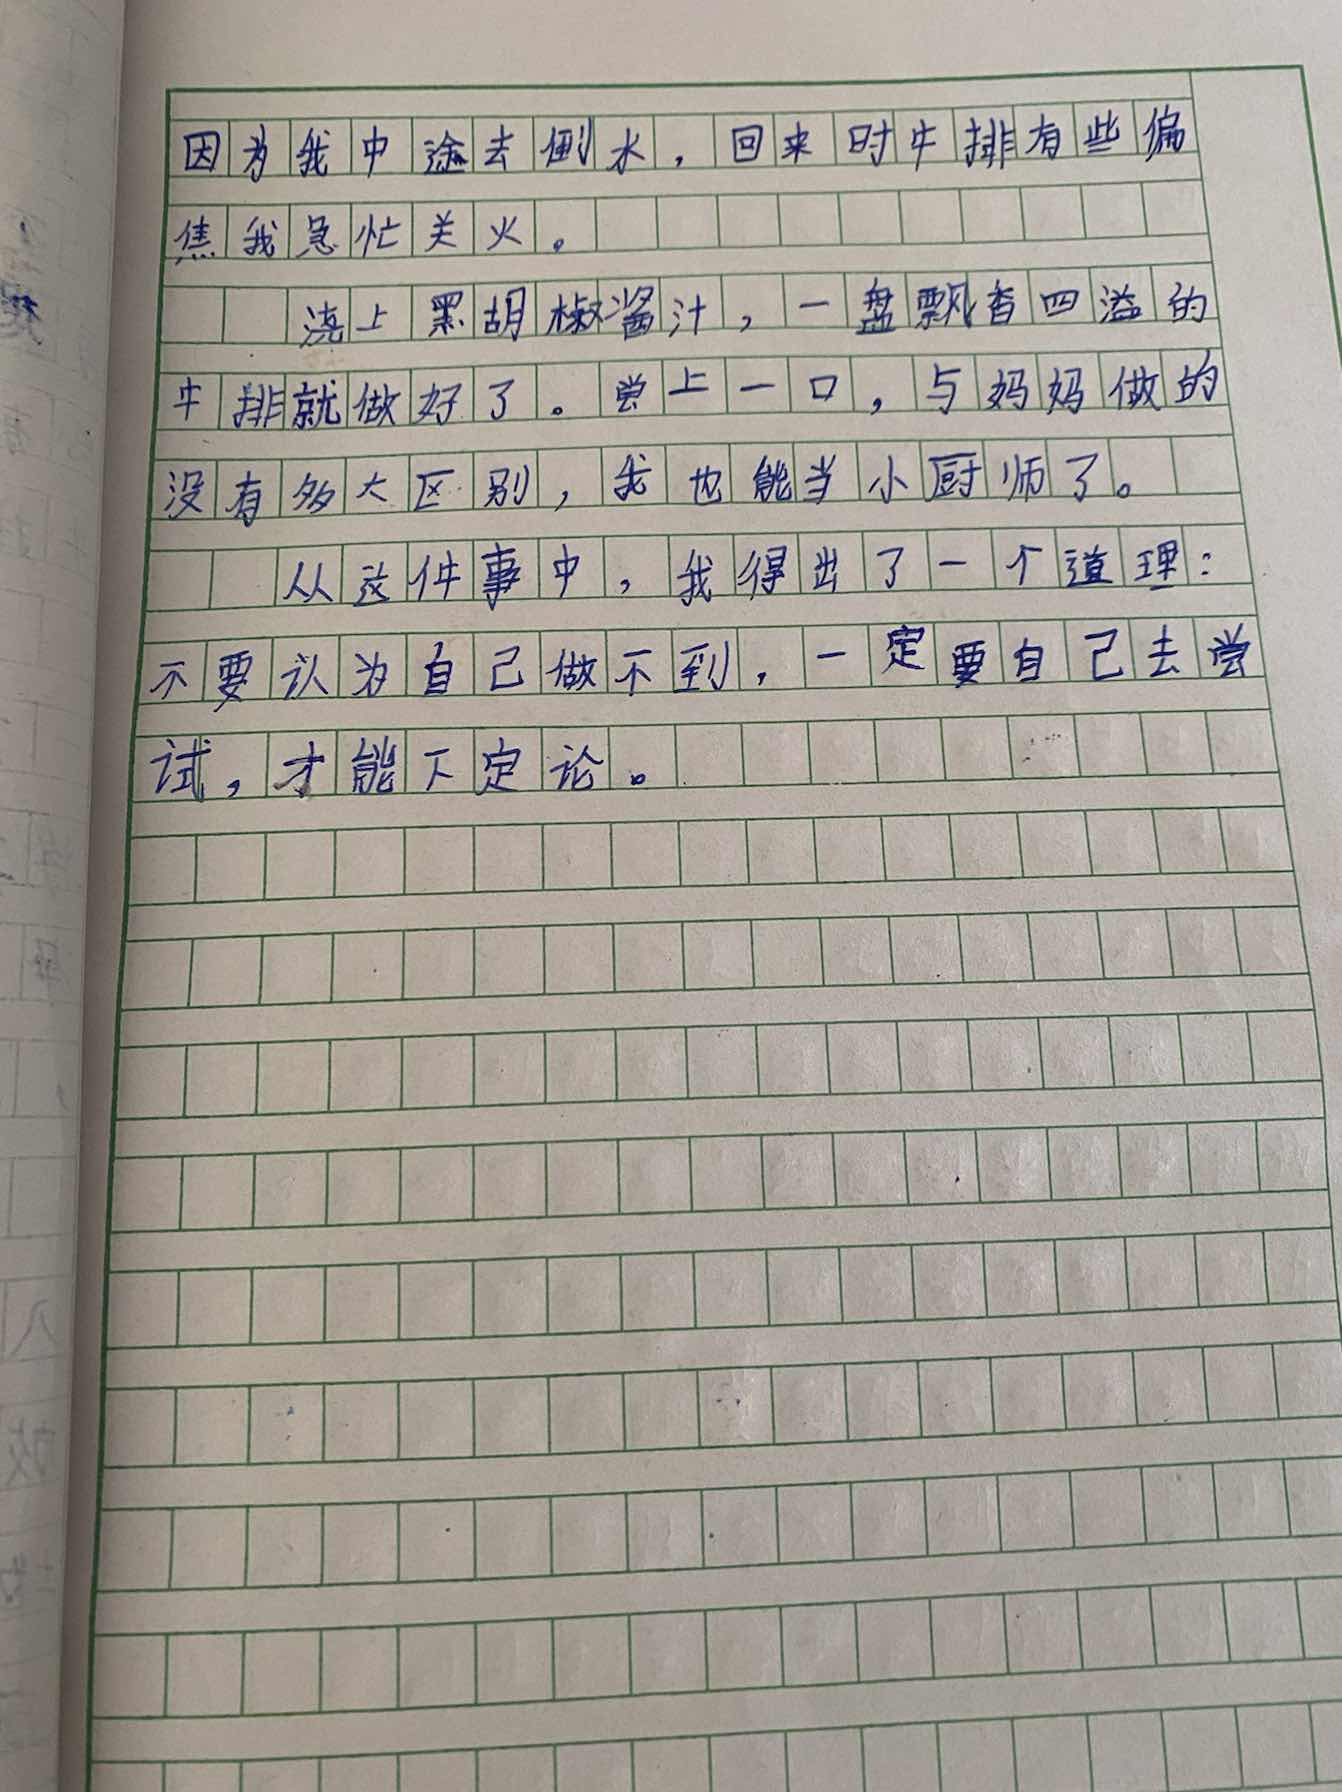 因为我中途去倒水，回来时牛排有些偏
焦我急忙关火。
浇上黑胡椒酱汁，一盘飘香四溢的
牛排就做好了。尝上一口，与妈妈做的
没有多大区别，我也能当小厨师了。
从这件事中，我得出了一个道理：
不要认为自己做不到，一定要自己去尝
试，才能下定论。